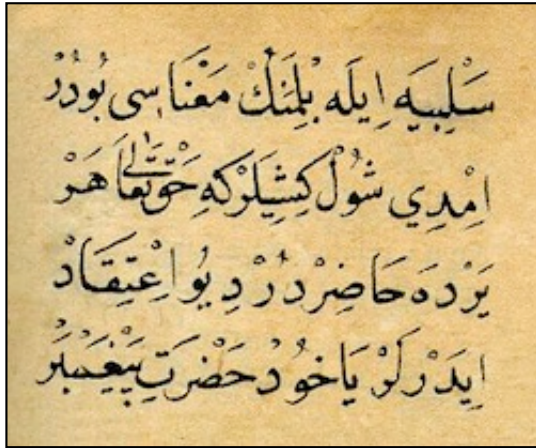 سَلْبِيَه اِيلَه بِلِمَنِكْ مَعْنَاسِى بُودُرْ
اِمْدِي شُولْ كِشِيلَرْ كِه حَقْ تَعَالَى هَرْ
يَرْدَه حَاضِرْدُرْ دِيُو اِعْتِقَادْ
ايِدَرْلَرْ يَاخُودْ حَضْرَتِ پَيْغَمْبَرْ